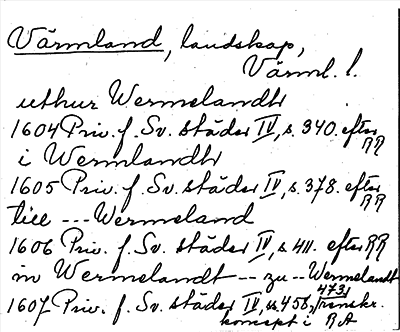 Värmland, landskap,
Värml. l.
uthur Wermelandh
1604 Priv. f. Sv. städer IV, s. 340. efter RR
i Wermlandh
1605 Priv. f. Sv. städer IV, s. 378. efter RR
till --- Wermeland
1606 Priv. f. Sv. städer IV, s. 411. efter RR
m Wermelandt -- zu -- Wermelandt
1607 Priv. f. Sv. städer IV, ss. 458, 473, transkr.
koncept i RA